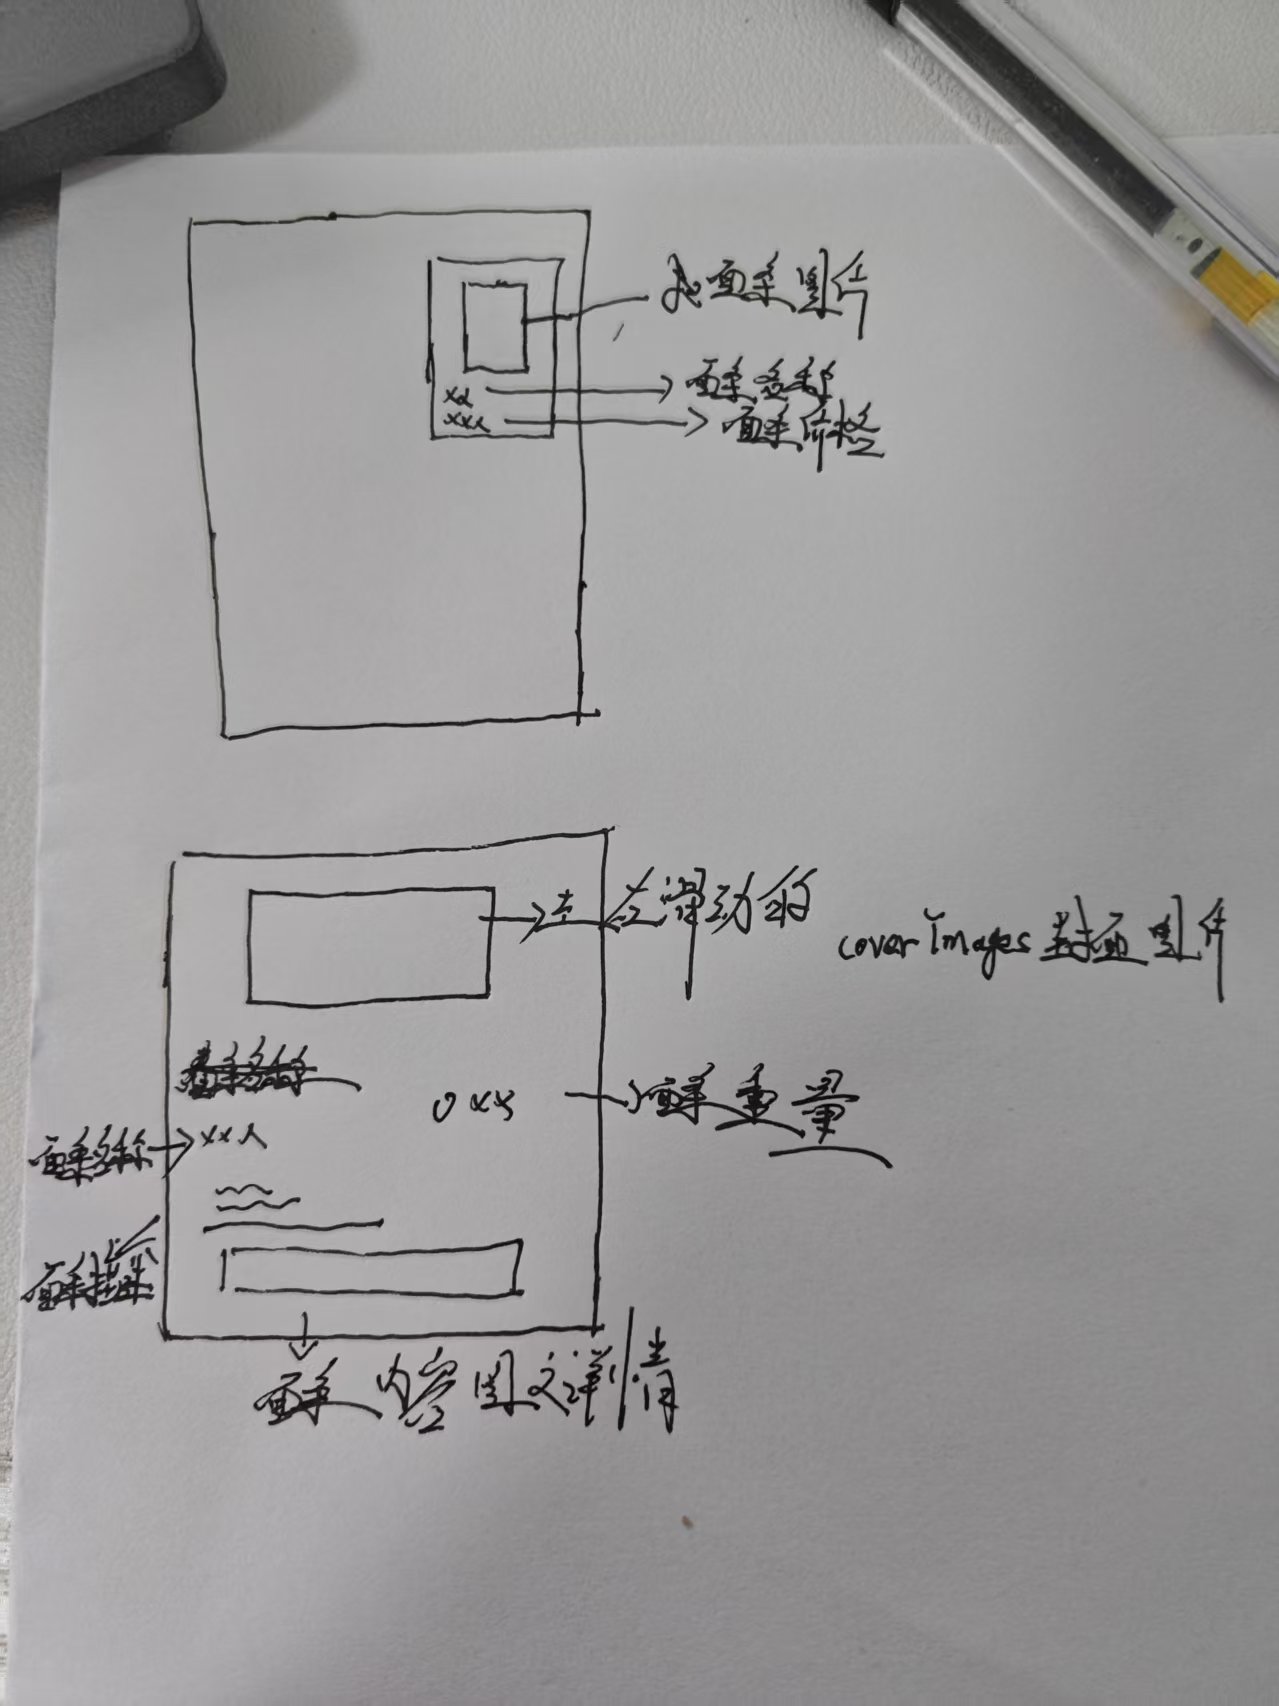 面条图片
xx
面条名称
xxx
面条价格
左 左滑动的
coverimages 封面图片
xxx
面条重量
面条名称
xxx
面条描述
面条内容图文详情